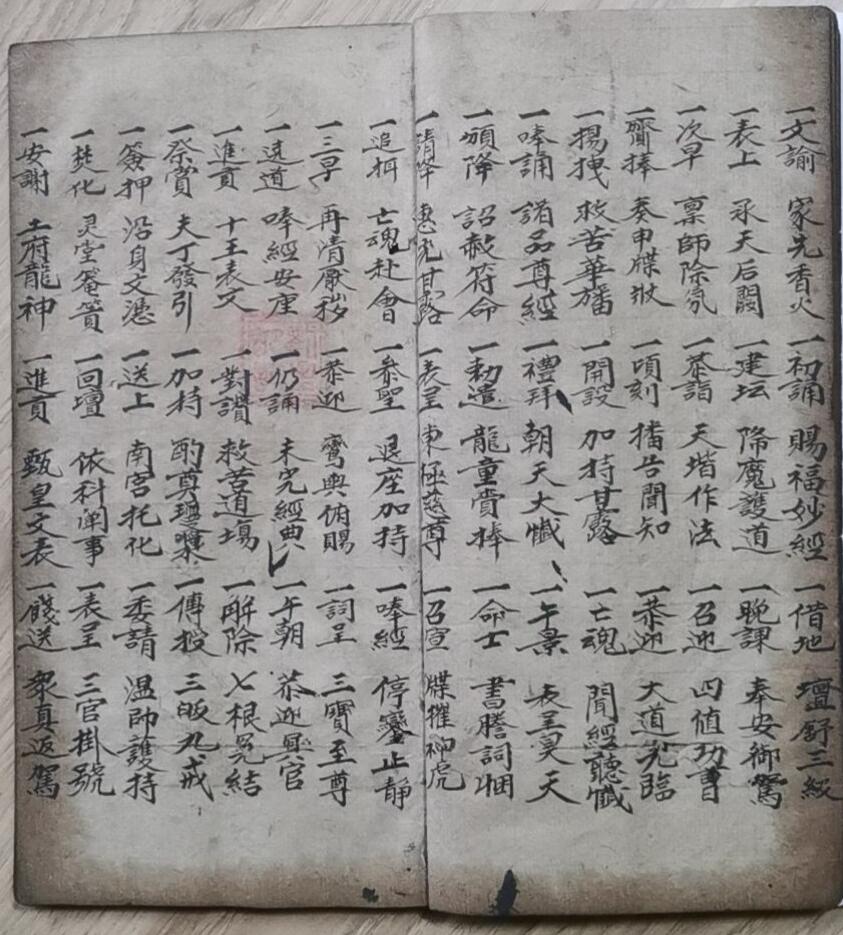 一文諭 家先香火 一初誦 賜福妙經 一借地 壇舒三級
一表上 承天后闕 一建坛 降魔護道 一晚課 奉安御駕
一次早 禀師除氛 一恭詣 天堦作法 一召迎 四值功曹
一齊捧 奏申牒狀 一頃刻 播告聞知 一恭迎 大道光臨
一揚拽 救苦華旛 一開設 加持甘露 一亡魂 聞經聽懺
一唪誦 諸品尊經 一禮拜 朝天大懺 一午景 表呈昊天
一頒降 詔赦符命 一勅遣 龍童賫捧 一命士 書謄詞悃
一請降 惠光甘露 一表呈 東極慈尊 一召宣 牒摧神虎
一追攝 亡魂赴會 一參聖 退座加持 一唪經 停鑾止静
一三早 再清厭穢 一恭迎 鸞輿俯賜 一詞呈 三寳至尊
一遶道 唪經安座 一仍誦 未完經典 一午朝 恭迎真官
一進貢 十王表文 一對讚 救苦道場 一解除 七根冤結
一祭賞 夫丁發引 一加持 酌奠 一傳授 三皈九戒
一簽押 沿身文憑 一送上 南宮托化 一委請 温帥護持
一焚化 灵堂篭簣 一回壇 依科闸事 一表呈 三官掛號
一安謝 土府龍神 一進貢 甄皇文表 一餞送 衆真返駕